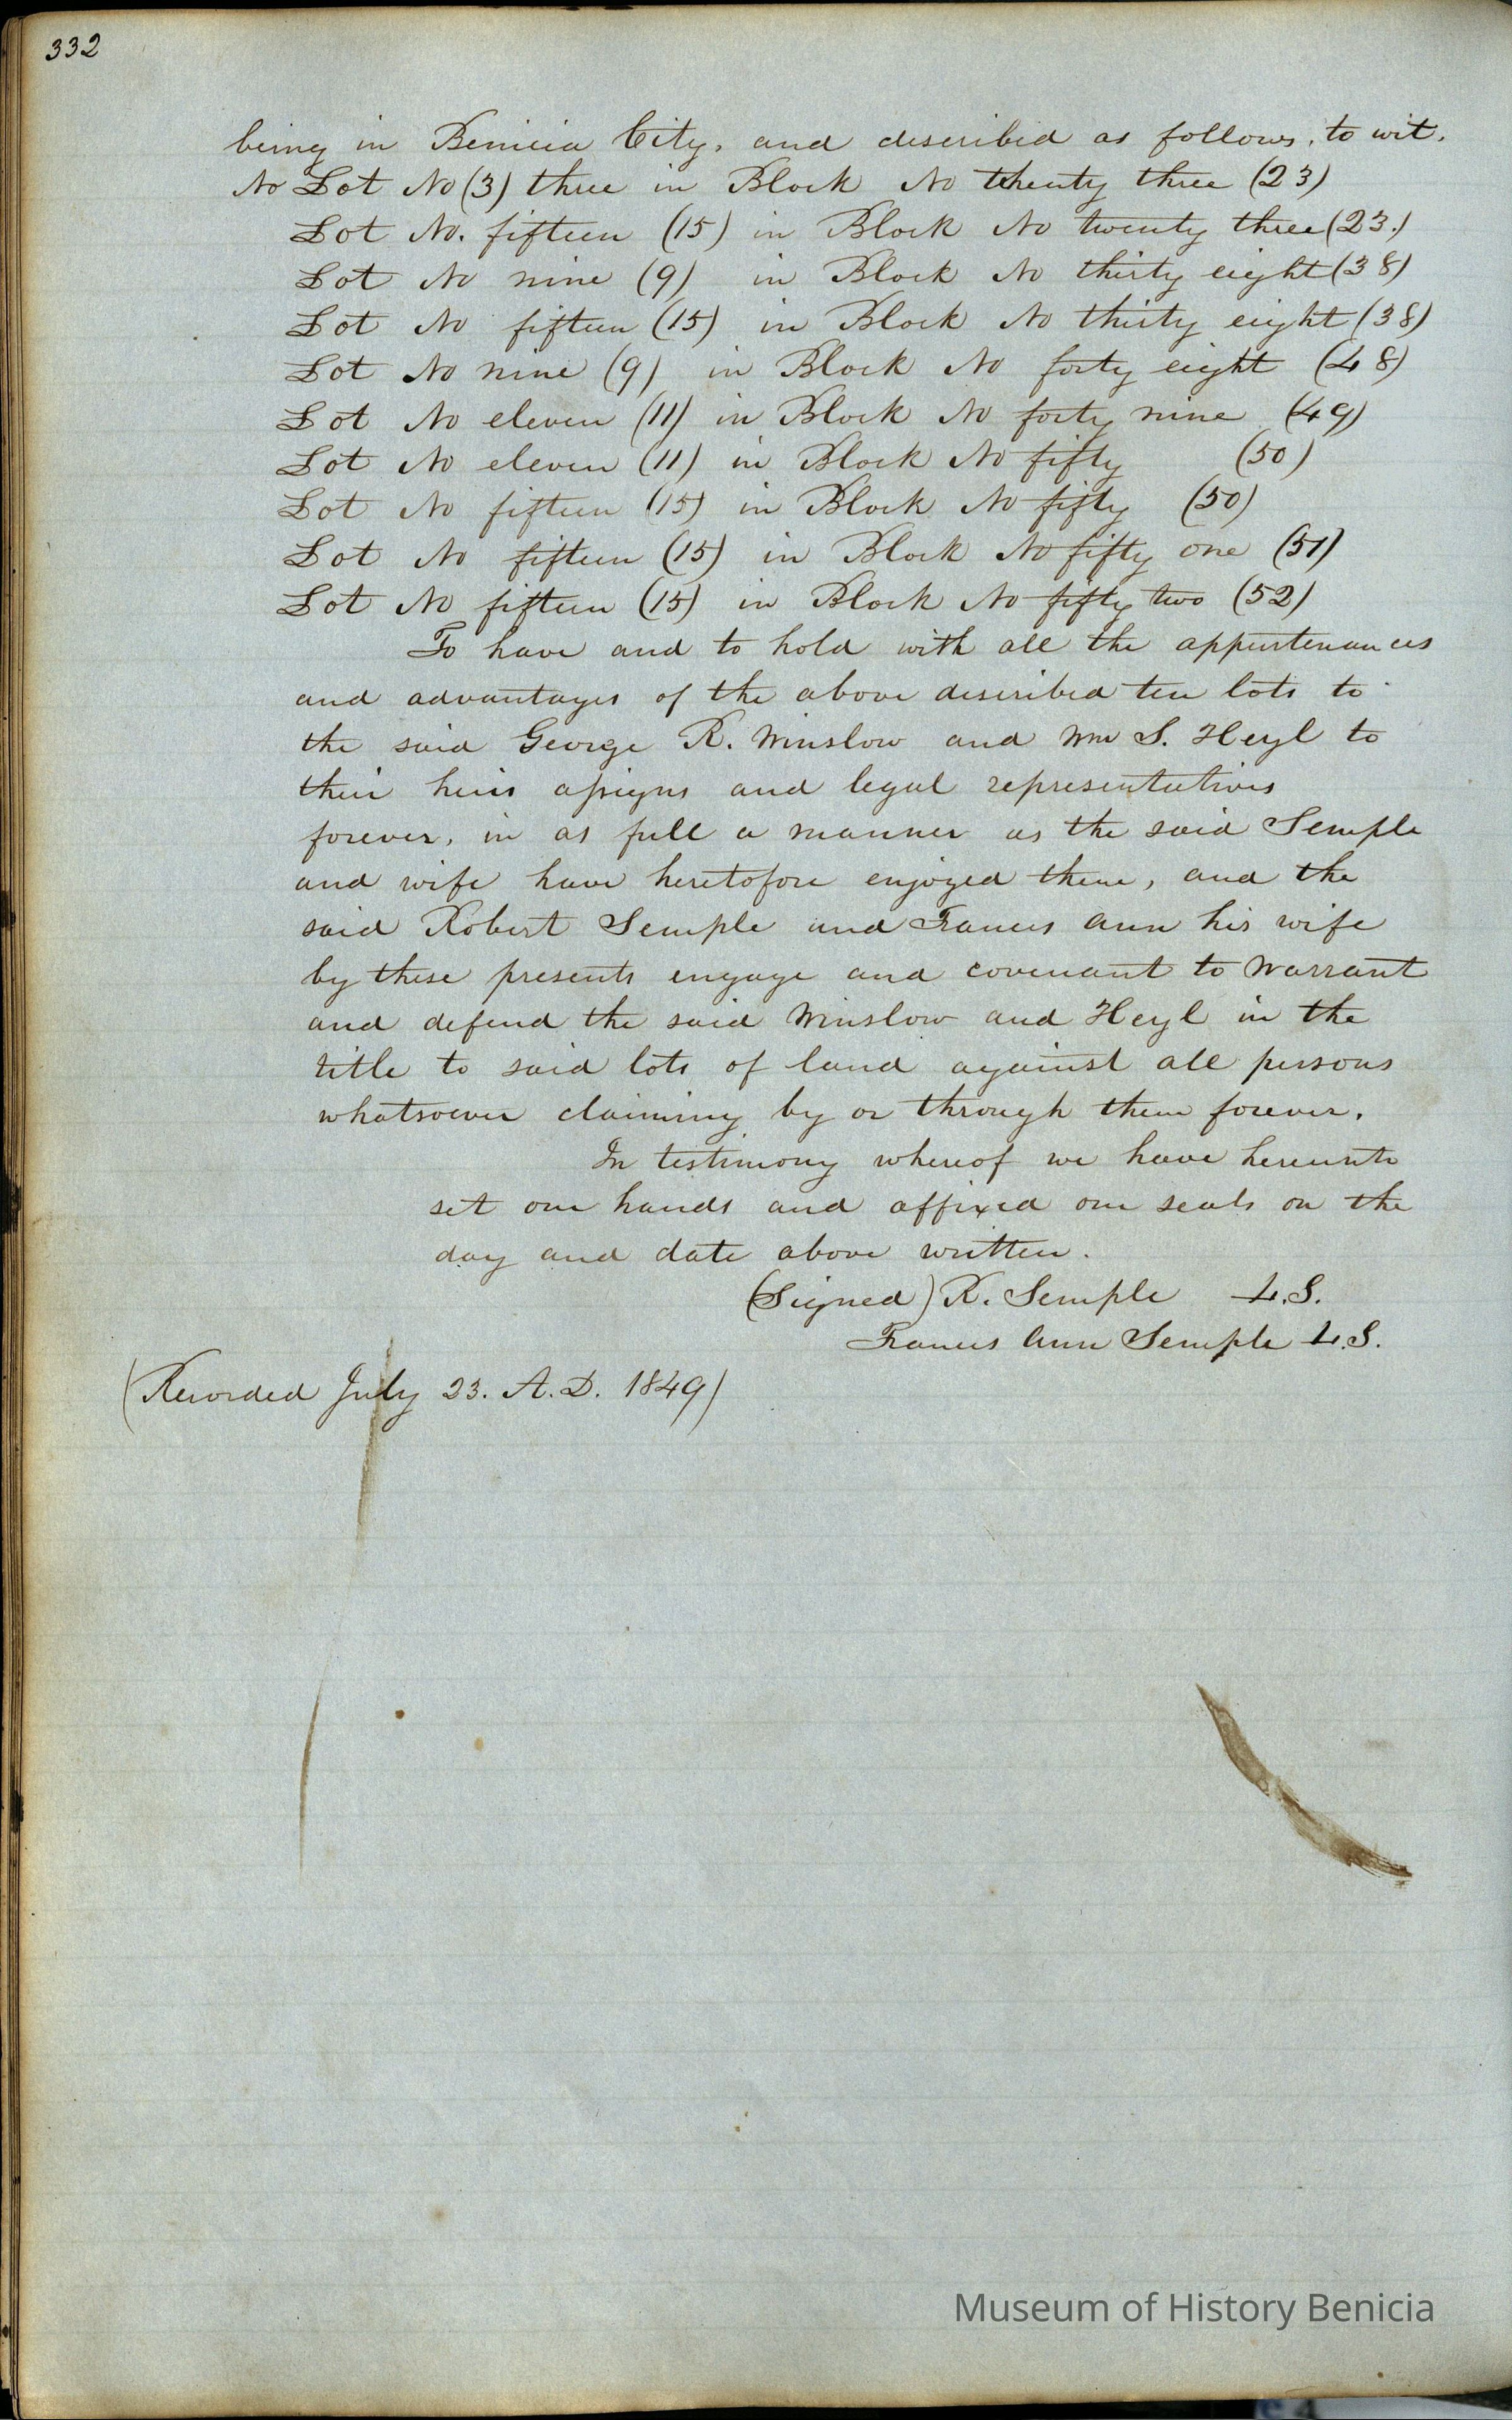 332
being in Benicia City, and described as follows, to wit.
No Lot No (3) three in Block No twenty three (23)
Lot No. fifteen (15) in Block No twenty three (23.)
Lot No nine (9) in Block No thirty eight (38)
Lot No fifteen (15) in Block No thirty eight (38)
Lot No nine (9) in Block No forty eight (48)
Lot No eleven (11) in Block No forty nine (49)
Lot No eleven (11) in Block No fifty (50)
Lot No fifteen (15) in Block No fifty (50)
Lot No fifteen (15) in Block No fifty one (51)
Lot No fifteen (15) in Block No fifty two (52)
To have and to hold with all the appurtenances
and advantages of the above described ten lots to
the said George R. Winslow and Wm S. Heyl to
their heirs assigns and legal representatives
forever, in as full a manner as the said Semple
and wife have heretofore enjoyed them, and the
said Robert Semple and Frances Ann his wife
by these presents engage and covenant to Warrant
and defend the said Winslow and Heyl in the
title to said lots of land against all persons
whatsoever claiming by or through them forever.
In testimony whereof we have hereunto
set our hands and affixed our seals on the
day and date above written.
(Signed) R. Semple L.S.
Frances Ann Semple L.S.
(Recorded July 23. A.D. 1849)
Museum of History Benicia